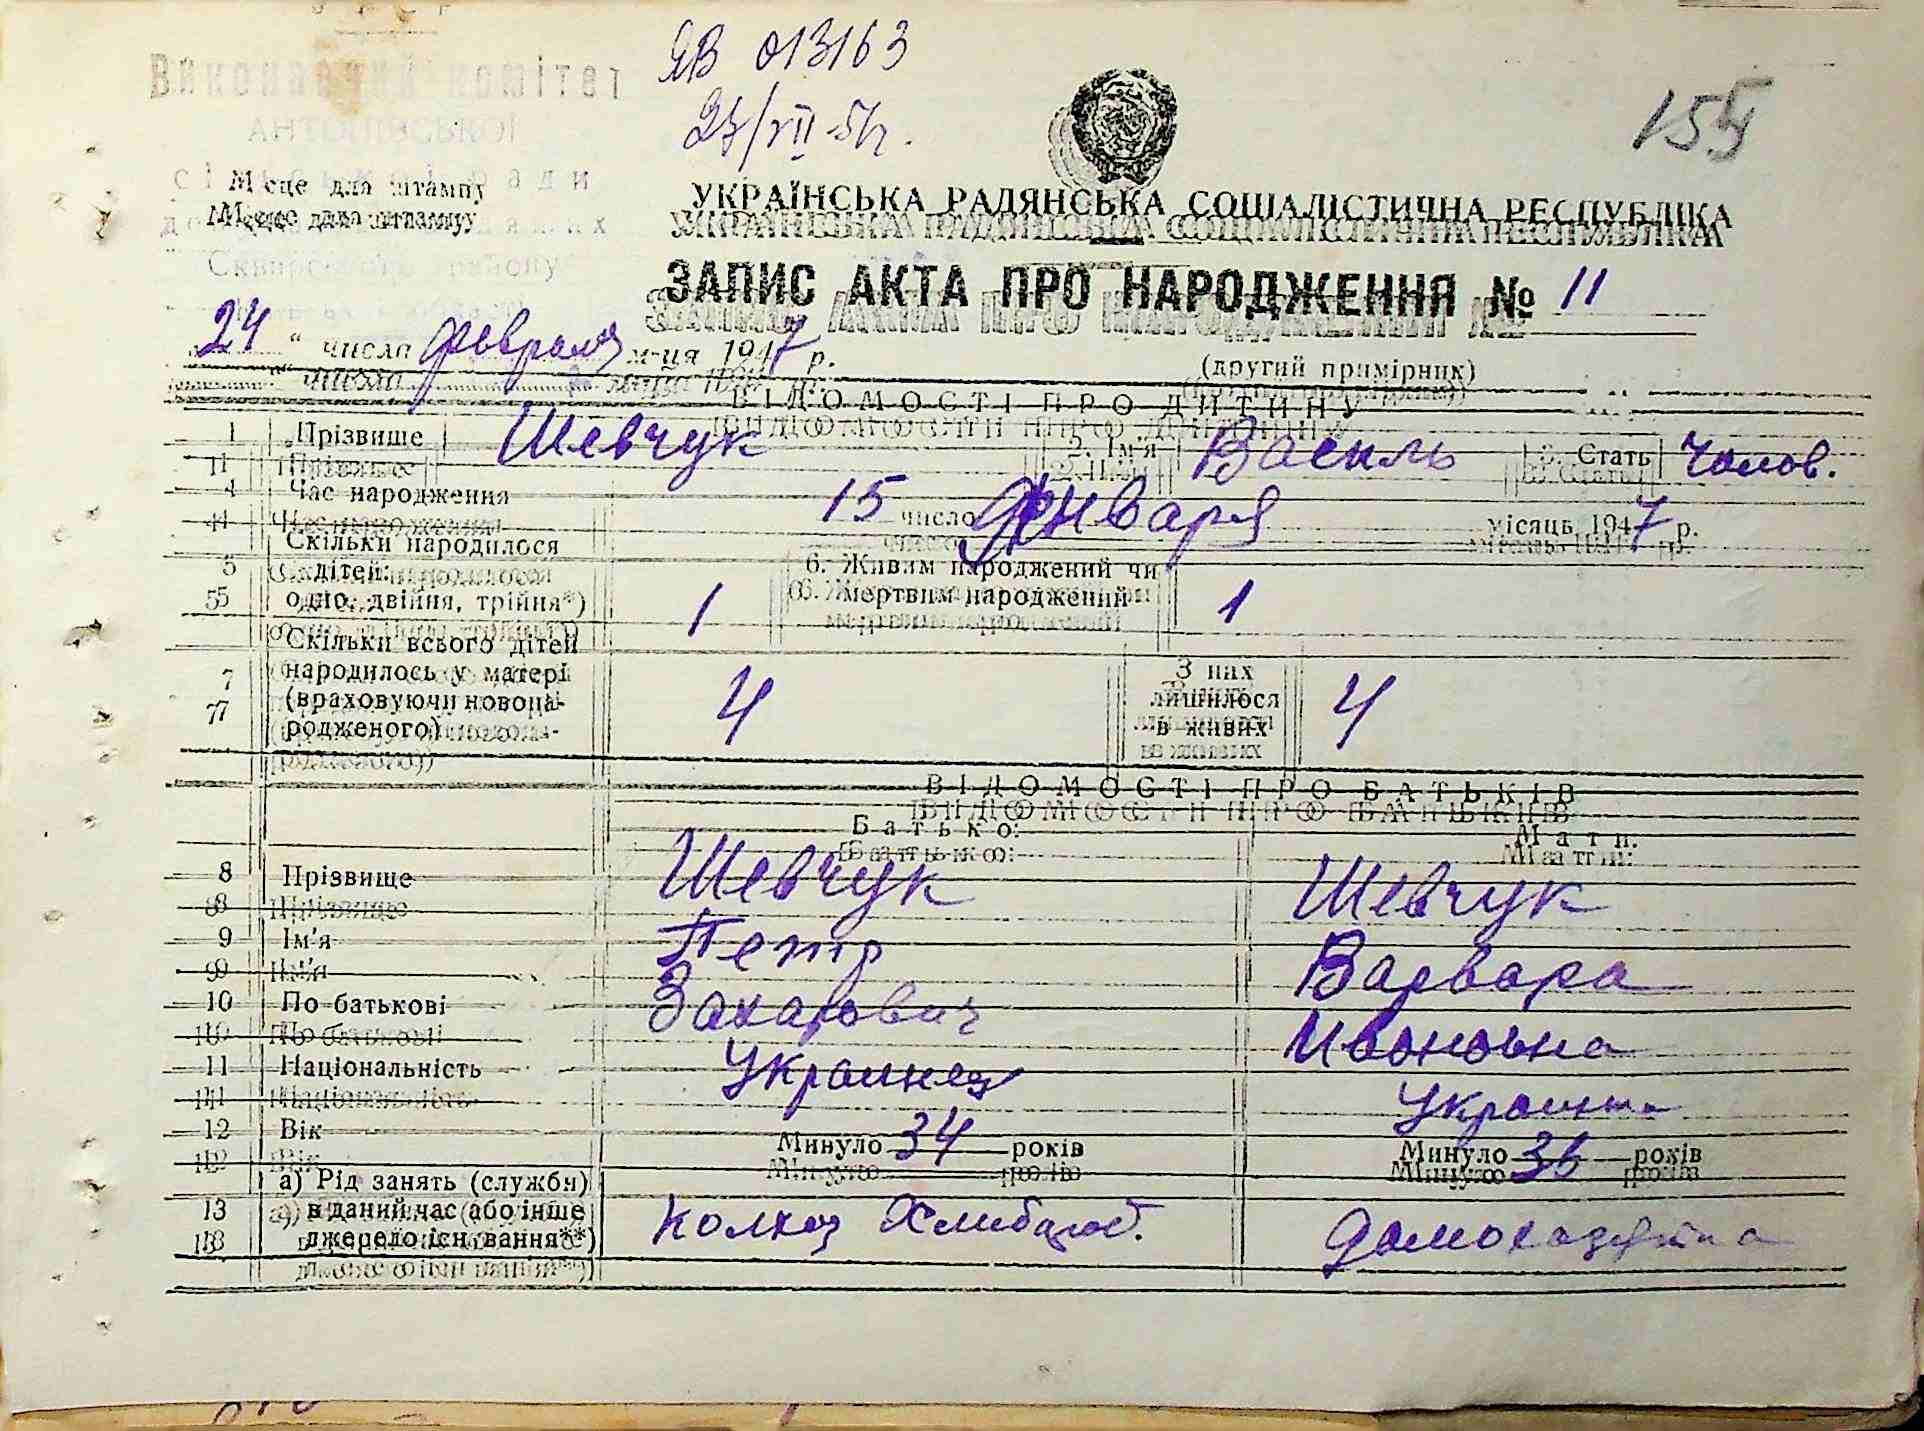 УРСР
Виконавчий комітет
АНТОНІВСЬКОЇ
сільської ради
Сквирського району
ЯВ 013163
155
Місце для штампу
УКРАЇНСЬКА РАДЯНСЬКА СОЦІАЛІСТИЧНА РЕСПУБЛІКА
ЗАПИС АКТА ПРО НАРОДЖЕННЯ № 11
24 " числа февраля м-ця 1947 р.
(другий примірник)
ВІДОМОСТІ ПРО ДИТИНУ
1 Прізвище Шевчук 2. Ім'я Василь 3. Стать Чолов.
4 Час народження 15 число Января місяць 1947 р.
5 Скільки народилося дітей: одно, двійня, трійня*) 1 6. Живим народжений чи мертвим народжений 1
7 Скільки всього дітей народилось у матері (враховуючи новонародженого) 4 З них лишилося в живих 4
ВІДОМОСТІ ПРО БАТЬКІВ
Батько: Мати:
8 Прізвище Шевчук Шевчук
9 Ім'я Петр Варвара
10 По батькові Захарович Ивановна
11 Національність Украинец Украинка
12 Вік Минуло 34 років Минуло 36 років
13 а) Рід занять (служби) в даний час або інше джерело існування**) колхоз